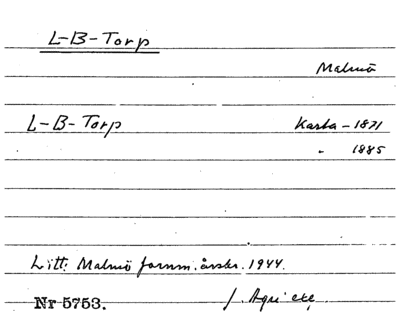 L-B-Torp
Malmö
L-B-Torp Karta - 1871
" 1885
Litt: Malmö fornm. årskr. 1944.
Nr 5753.